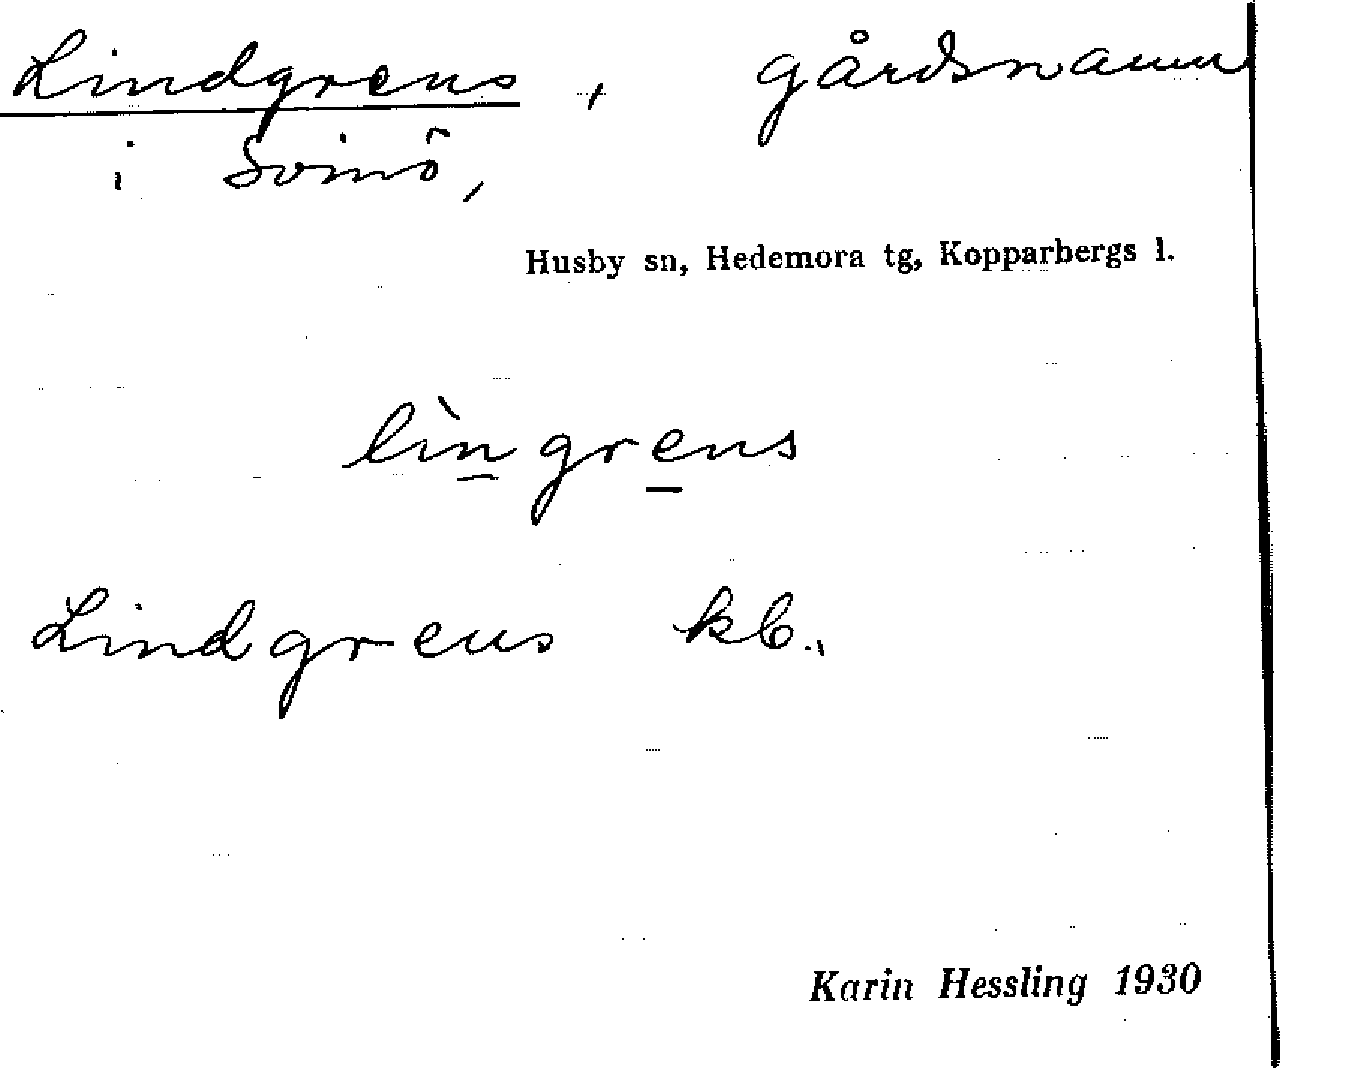 Lindgrens, gårdsnamn
i Svinö,
Husby sn, Hedemora tg, Kopparbergs l.
lìngrens
Lindgrens kb.,
Karin Hessling 1930